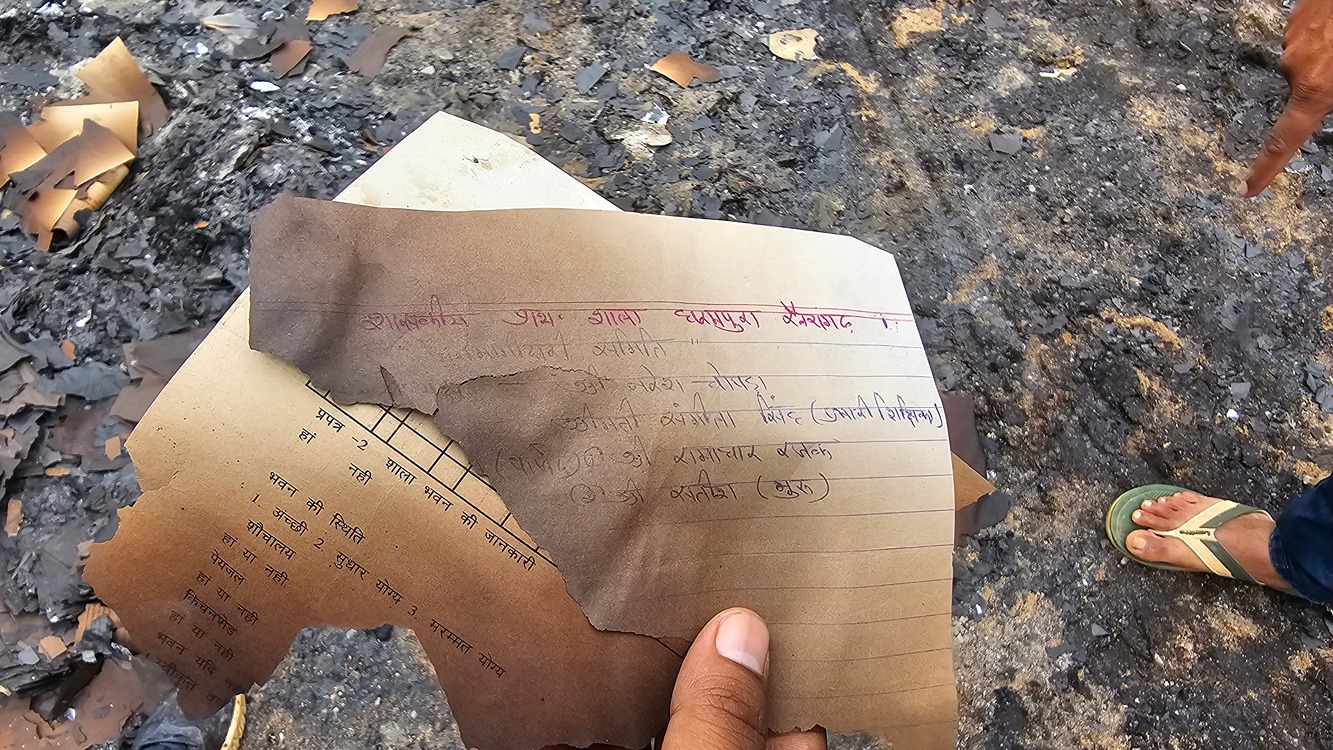 शासकीय प्राथ. शाला धरमपुरा खैरागढ़
समिति "
श्री नरेश चोपड़ा
श्रीमती संगीता सिंह (प्रभारी शिक्षिका)
(पार्षद) ① श्री रामाधार रजक
② श्री सतीश
प्रपत्र -2 शाला भवन की जानकारी
हां नही
भवन की स्थिति
1. अच्छी 2. सुधार योग्य 3. मरम्मत योग्य
शौचालय
हां या नही
पेयजल
हां या नही
किचनशेड
हां या नही
भवन यदि